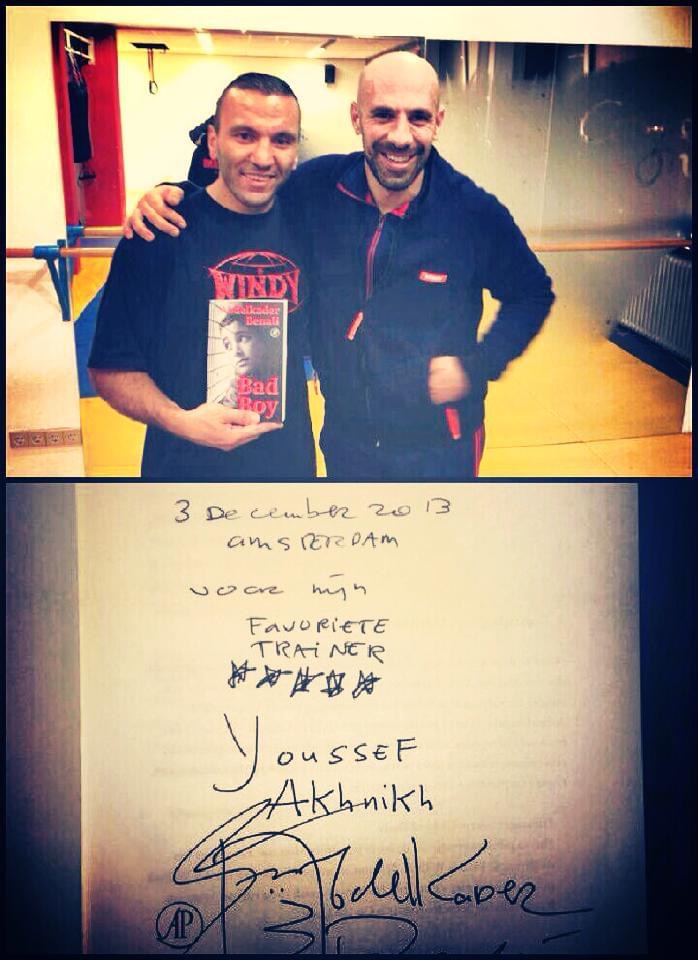 WINDY
Abdelkader
Benali
Bad
Boy
3 December 2013
AMSTERDAM
voor mijn
FAVORIETE
TRAINER
Youssef
Akhnikh
Abdelkader
AP